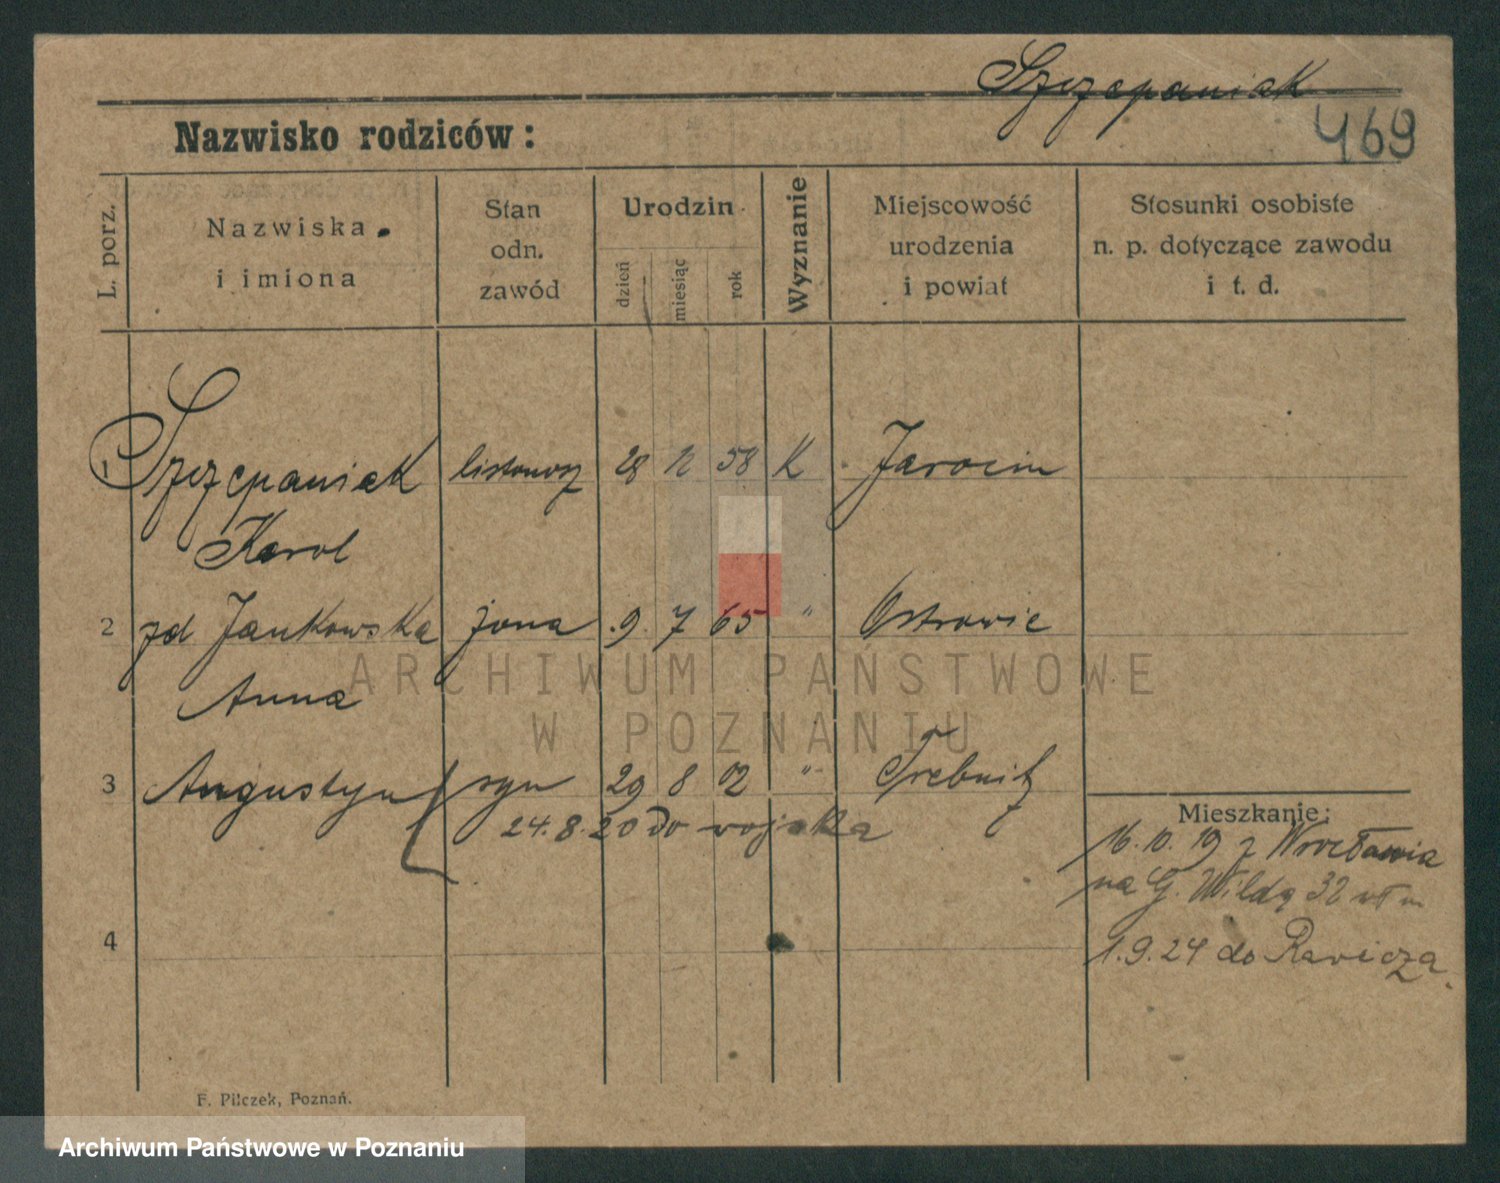 Szczepaniak
469
Nazwisko rodziców:
L. porz.
Nazwiska
i imiona
Stan
odn.
zawód
Urodzin
dzień
miesiąc
rok
Wyznanie
Miejscowość
urodzenia
i powiat
Stosunki osobiste
n. p. dotyczące zawodu
i t. d.
1 Szczepaniak listonosz 28 12 58 K Jarocin
Karol
2 zd Jankowska żona 9. 7 65 " Ostrowie
Anna
3 Augustyn syn 29 8 02 " Trebnitz
24.8.20 do wojska
Mieszkanie:
16.10.19 z Wrocławia
na G. Wildą 32
4
1.9.24 do Rawicza.
F. Pilczek, Poznań.
ARCHIWUM PAŃSTWOWE
W POZNANIU
Archiwum Państwowe w Poznaniu